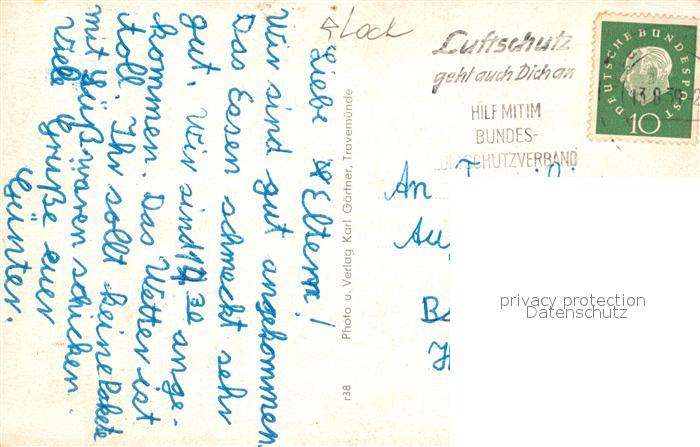 Liebe Eltern!
Wir sind gut angekommen.
Das Essen schmeckt sehr
gut. Wir sind 17 30 ange-
kommen. Das Wetter ist
toll. Ihr sollt keine Pakete
mit Süßwaren schicken.
Viele Grüße euer
Günter.
Photo u. Verlag Karl Gärtner, Travemünde
r38
Luftschutz
geht auch Dich an
HILF MIT IM
BUNDES-
LUFTSCHUTZVERBAND
DEUTSCHE BUNDESPOST
10
An
privacy protection
Datenschutz